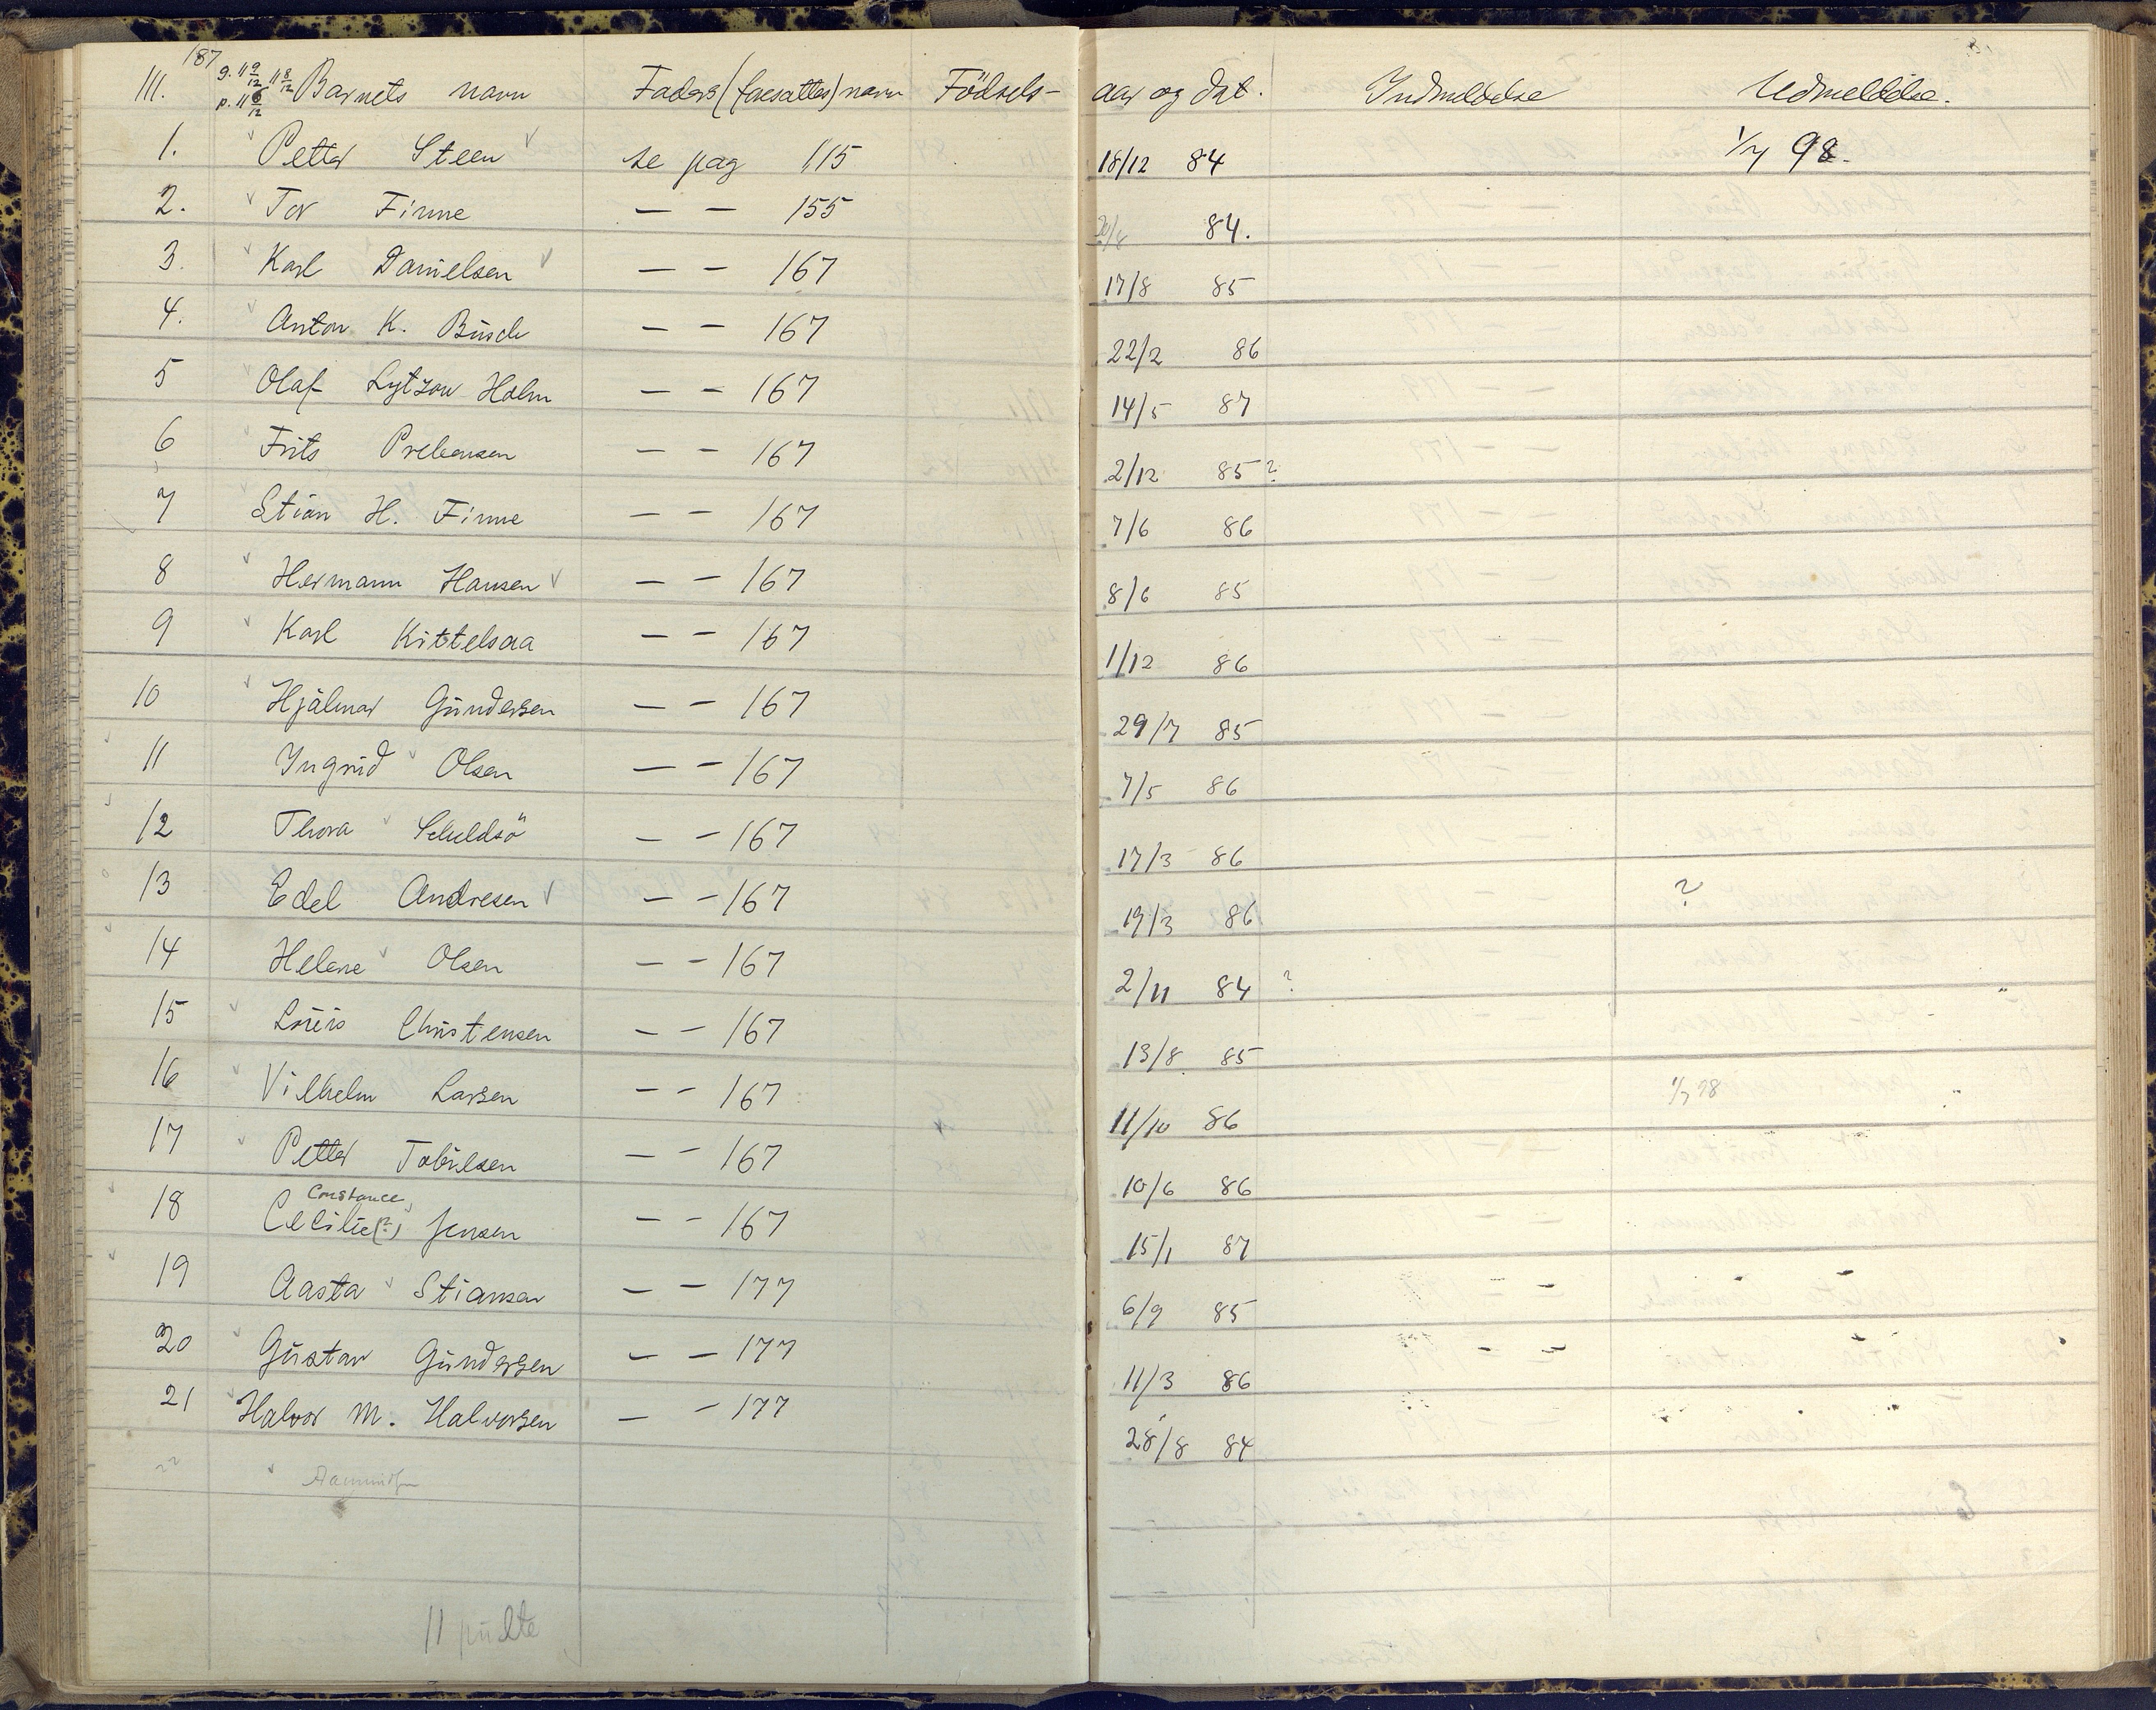 187
III. g. 11 9/12 11 8/12 Barnets navn Faders (foresattes) navn Födsels- aar og dat. Indmeldelse Udmeldelse.
p. 11 6/12
1. Petter Steen se pag 115 18/12 84 1/7 98.
2. Tor Finne — — 155 /8 84.
3. Karl Danielsen — — 167 17/8 85
4. Anton K. Busch — — 167 22/2 86
5 Olaf Lytzow Holm — — 167 14/5 87
6 Frits Prebensen — — 167 2/12 85 ?
7 Stian H. Finne — — 167 7/6 86
8 Hermann Hansen — — 167 8/6 85
9 Karl Kittelsaa — — 167 1/12 86
10 Hjalmar Gundersen — — 167 29/7 85
11 Ingrid Olsen — — 167 7/5 86
12 Thora Schuldsö — — 167 17/3 86
13 Edel Andresen — — 167 19/3 86 ?
14 Helene Olsen — — 167 2/11 84 ?
15 Louis Christensen — — 167 13/8 85
16 Vilhelm Larsen — — 167 11/10 86 1/7 98
17 Petter Tobiesen — — 167 10/6 86
Constance
18 Cecilie (?) Jensen — — 167 15/1 87
19 Aasta Stiansen — — 177 6/9 85
20 Gustav Gundersen — — 177 11/3 86
21 Halvor M. Halvorsen — — 177 28/8 84
22 Aamundsen
11 pulte